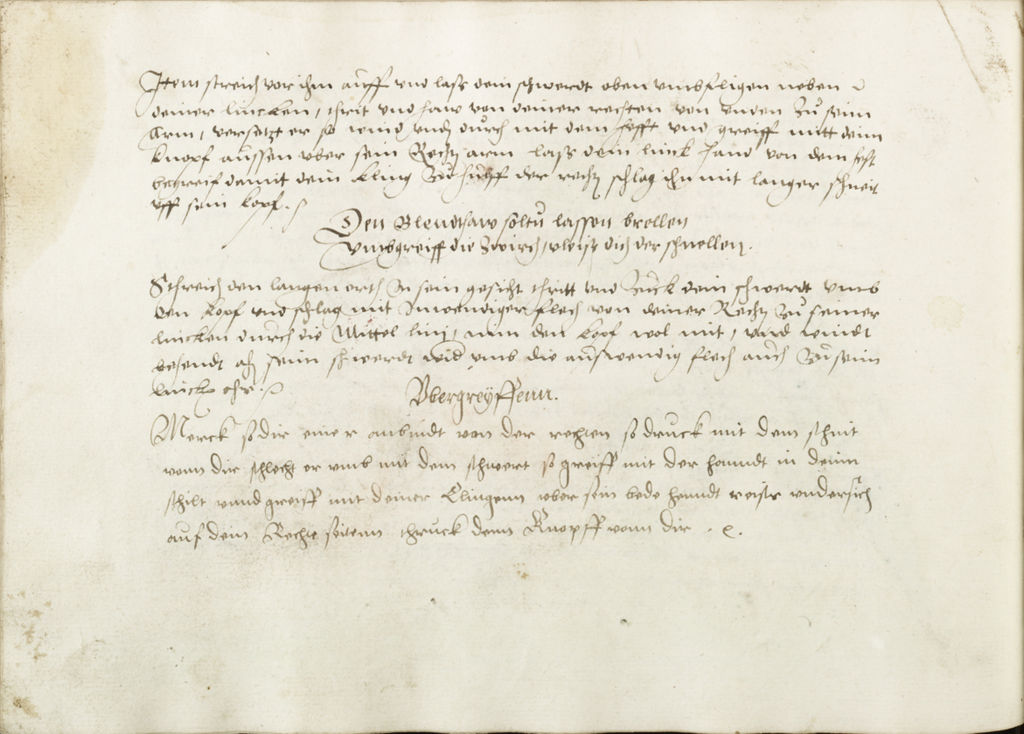 Item streich vor ihm auff vnd lass dein schwerdt oben vmbfligen neben
deiner lincken, thrit vnd haw von deiner rechten von vnden zu seim
Arm, versetzt er so wind vndt durch mit dem hefft vnd greiff mitt deim
knopf aussen vber sein Recht arm lass dein linck hand von dem heft
begreif damit dein kling zu hulff der recht schlag ihn mit langer schneit
vff sein kopf.
Den Blendthaw soltu lassen brellen
vmbgreiff die zwirch, vleist dich der schnellen.
Sthreich den langen orth In sein gesicht thritt vnd zuck dein schwerdt vmb
den kopf vnd schlag mit Inwendiger flech von deiner Recht zu seiner
lincken durch die Mittel lini, nim den kopf wol mit, vnd windt
behendt ahn seim schwerdt wid vmb die auswendig flech auch zu seim
linck ohr.
Vbergreyffenn.
Merck so dir einer anbindt von der rechten so druck mit dem schnit
vonn dir schlecht er vmb mit dem schwert so greiff mit der hanndt in deinn
schilt vnnd greiff mit deiner Klingenn vber sein bede hanndt reiss vndersich
auf dein Rechte seitenn thruck denn Knopff vonn dir.